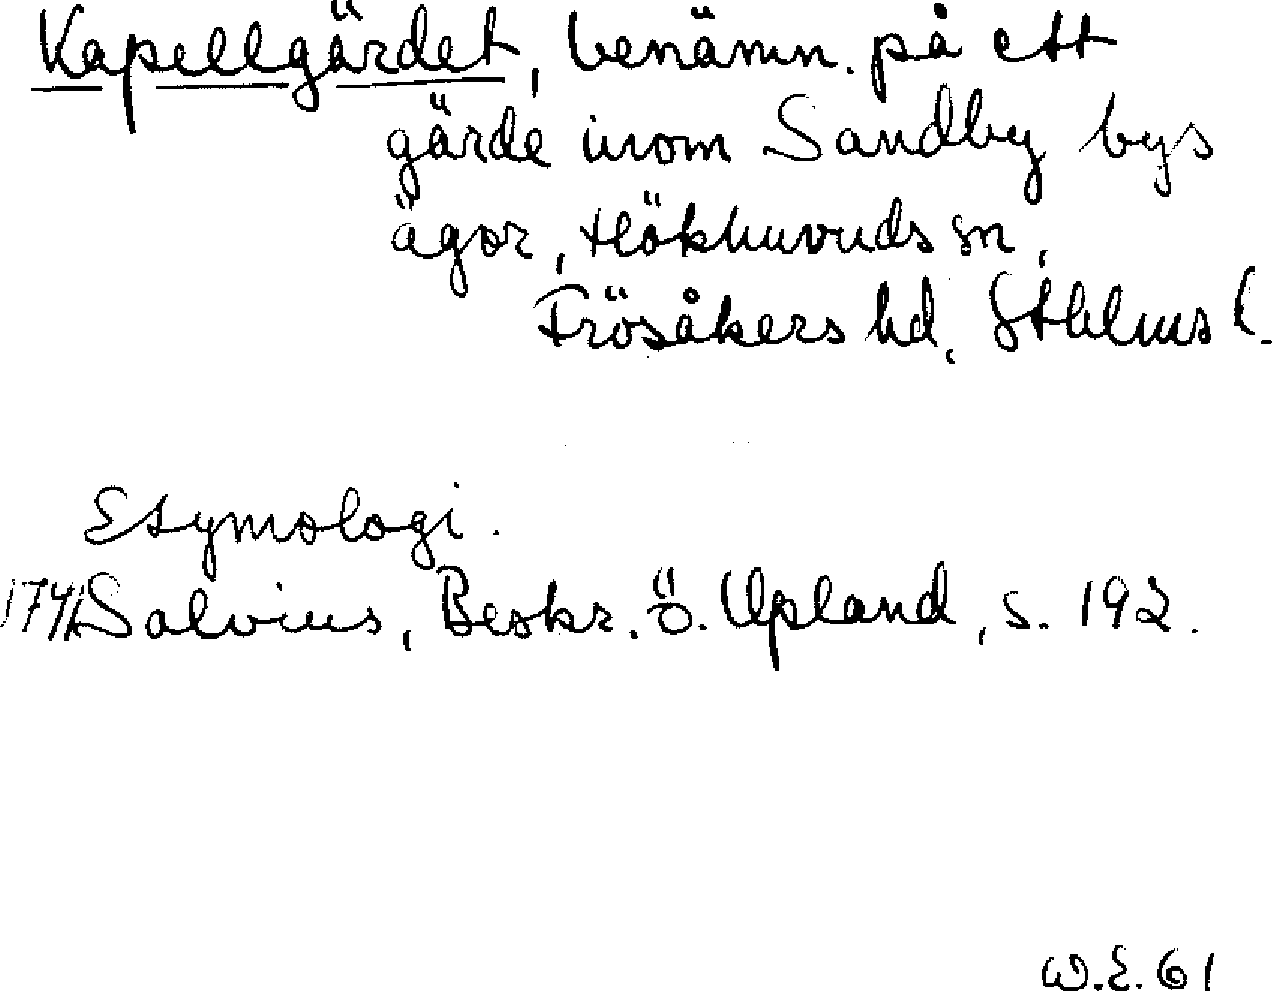 Kapellgärdet, benämn. på ett
gärde inom Sandby bys
ägor, Hökhuvuds sn,
Frösåkers hd, Sthlms l.
Etymologi.
1741 Salvius, Beskr. ö. Upland, s. 192.
W.E. 61